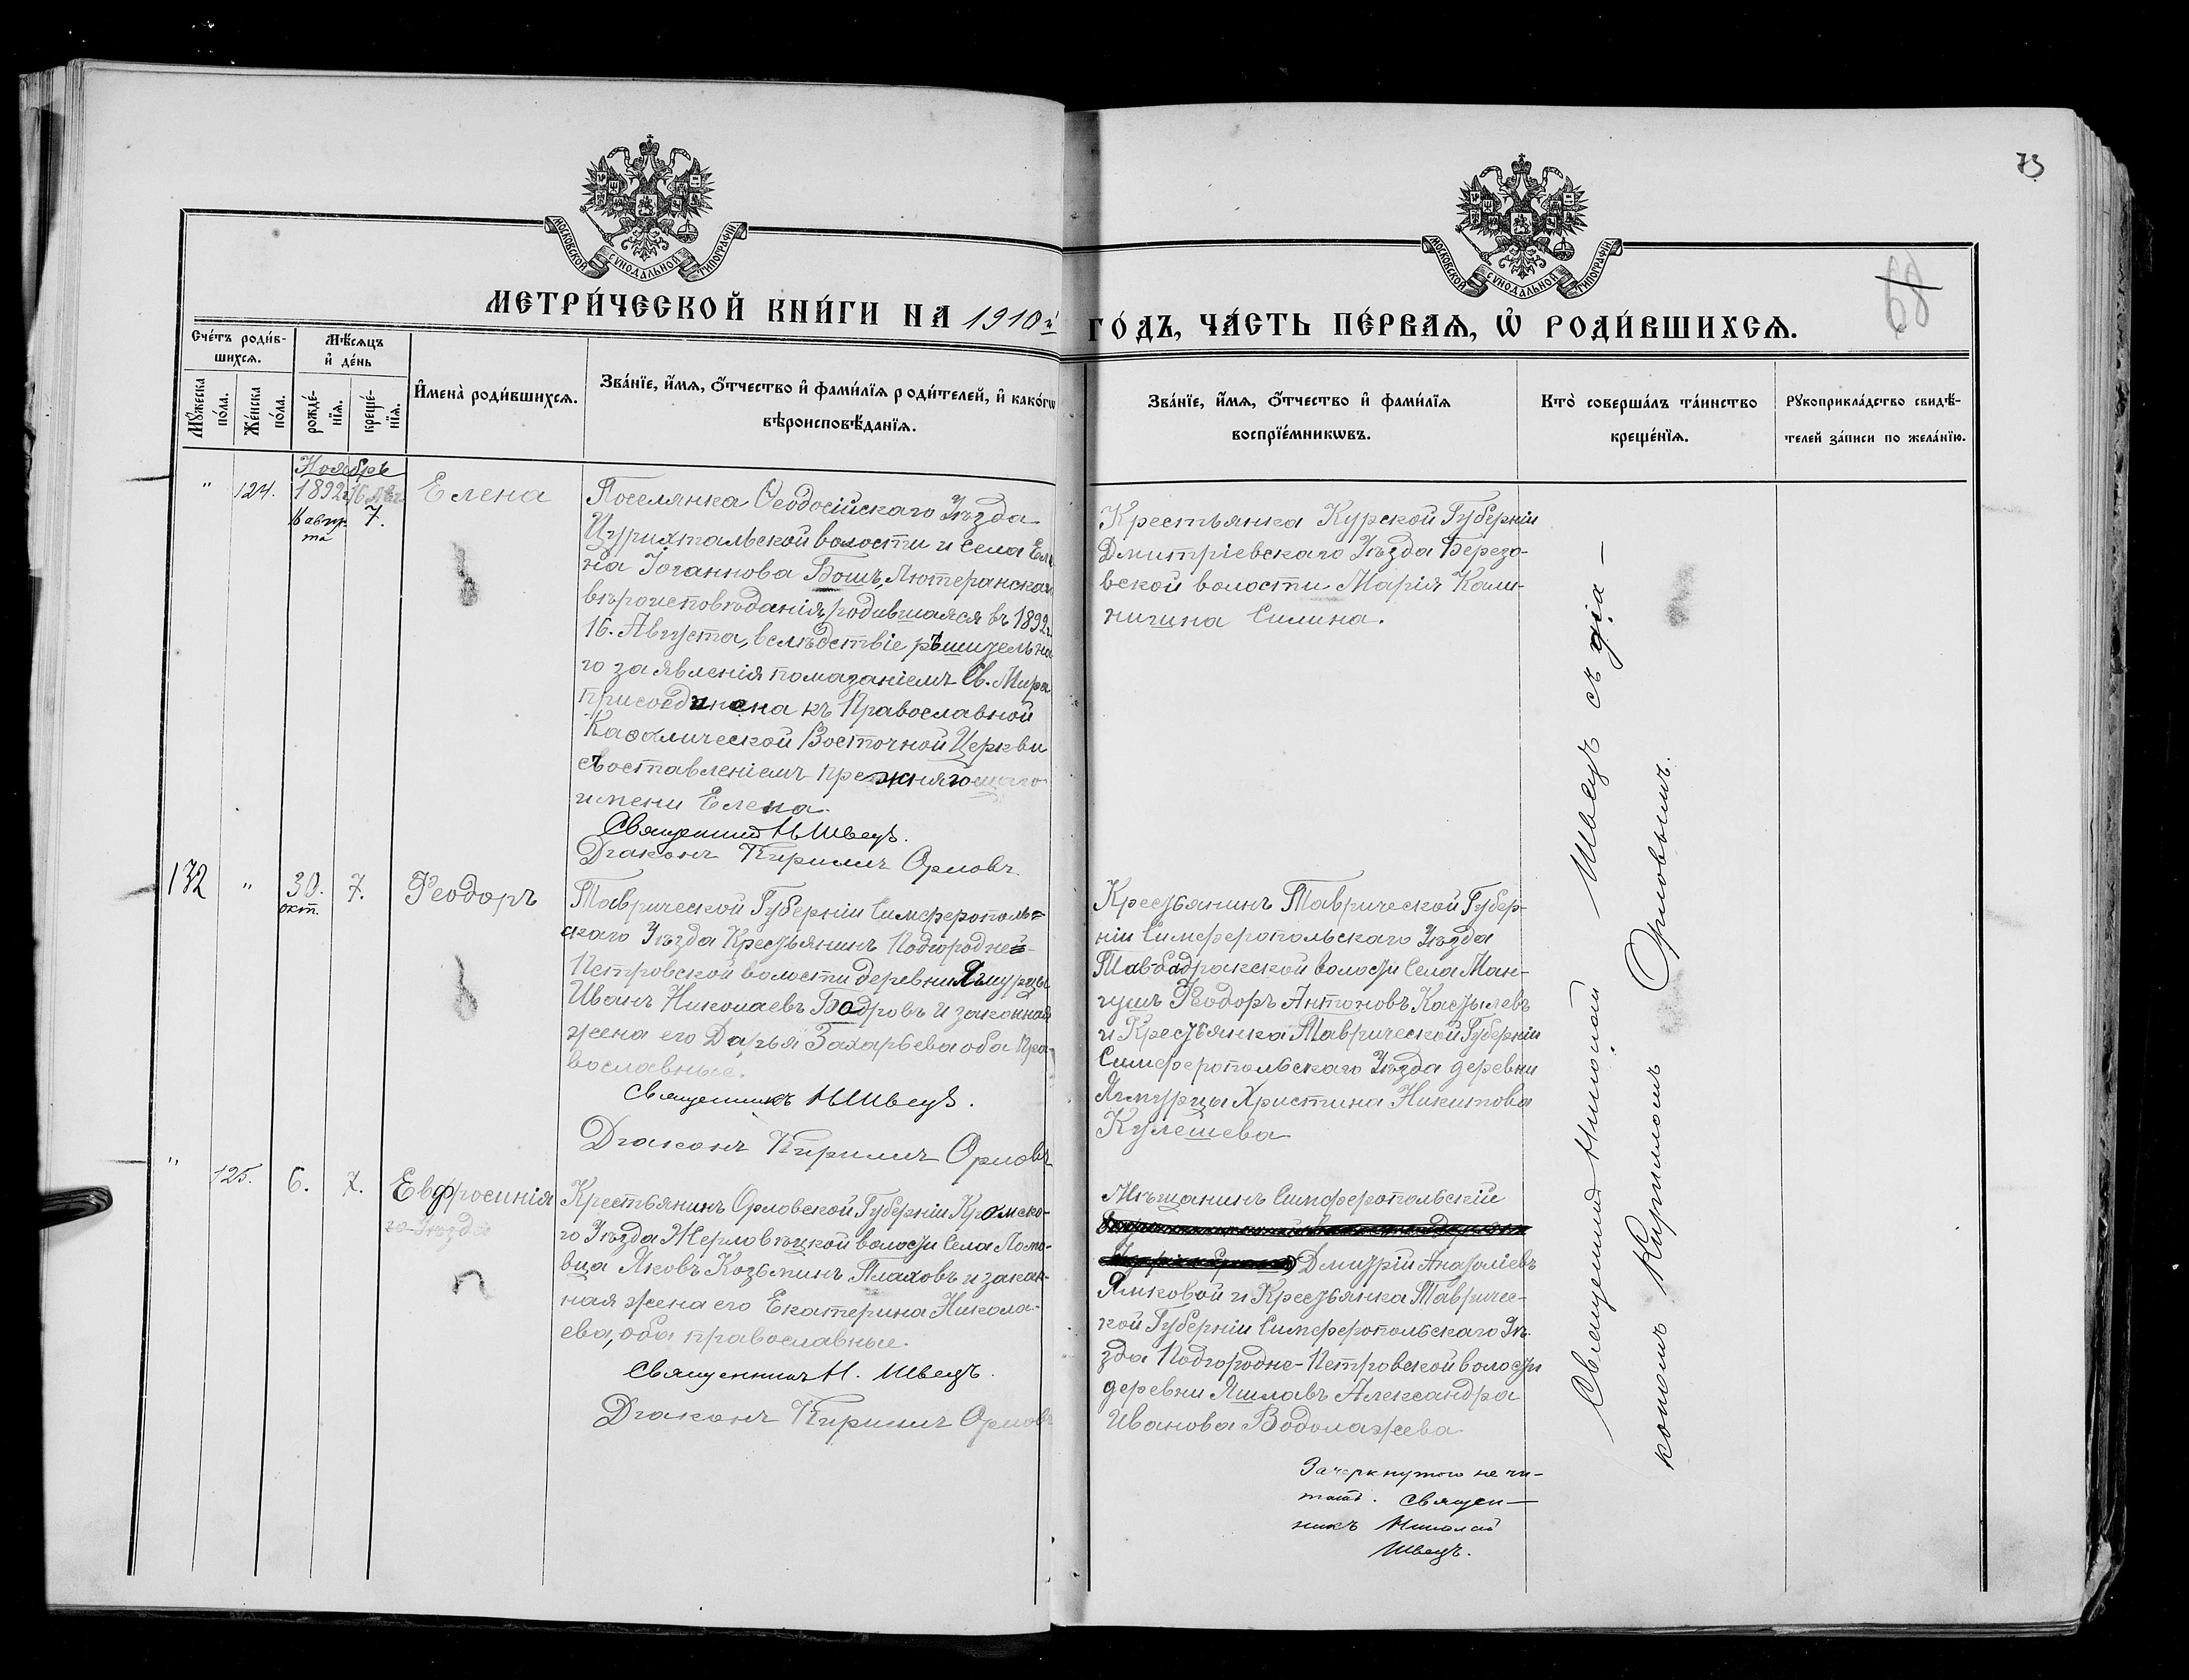 73
68
МОСКОВСКОЙ СУНОДАЛЬНОЙ ТИПОГРАФІИ
МОСКОВСКОЙ СУНОДАЛЬНОЙ ТИПОГРАФІИ
МЕТРИ́ЧЕСКОЙ КНИ́ГИ НА 1910й
ГО́ДЪ, ЧА́СТЬ ПЕ́РВАѦ, Ѡ҆ РОДИ́ВШИХСѦ.
Сче́тъ роди́в-
шихсѧ.
Мѣ́сѧцъ
и҆ де́нь
Мꙋ́жеска
по́ла.
Же́нска
по́ла.
рожде́-
нїѧ.
креще́-
нїѧ.
И҆мена̀ роди́вшихсѧ.
Зва́нїе, и҆́мѧ, ѻ҆́тчество и҆ фами́лїѧ роди́телей, и҆ како́гѡ
вѣроисповѣ́данїѧ.
Зва́нїе, и҆́мѧ, ѻ҆́тчество и҆ фами́лїѧ
воспрїе́мникѡвъ.
Кто̀ соверша́лъ та́инство
креще́нїѧ.
Рꙋкоприкла́дство свидѣ́-
телей за́писи по жела́нїю.
Ноябрь
" 124. 1892 г. 16 Авг. Елена
16 авгу-
ста 7.
Поселянка Ѳеодосійскаго Уѣзда
Цурихтальской волости и села Еле
на Іоганнова Бошъ, Лютеранскаго
вѣроисповѣданія, родившаяся въ 1892 г.
16. Августа, вслѣдствіе рѣшительна
го заявленія помазаніемъ Св. Мира
присоединена къ Православной
Каѳолической Восточной Церкви
съ оставленіемъ прежняго
имени Елена.
Священник Н Швецъ.
Діаконъ Кириллъ Орловъ
Крестьянка Курской Губерніи
Дмитріевскаго Уѣзда Березо-
вской волости Марія Кали-
ничина Силина.
132 " 30. 7. Ѳеодоръ
окт.
Таврической Губерніи Симферополь=
скаго Уѣзда Крестьянинъ Подгородне=
Петровской волости деревни Ягмурцы
Иванъ Николаевъ Бодровъ и законная
жена его Дарья Захарьева оба пра-
вославные.
Священникъ Н Швецъ.
Діаконъ Кириллъ Орловъ
Крестьянинъ Таврической Губер-
ніи Симферопольскаго Уѣзда
Тав-Бадракской волости Села Ман-
гушъ Ѳеодоръ Антоновъ Кастылевъ
и Крестьянка Таврической Губерніи
Симферопольскаго Уѣзда деревни
Ягмурцы Христина Никитова
Кулешева
" 125. 6. 7. Евфросинія
го Уѣзда
Крестьянинъ Орловской Губерніи Кромско-
го Уѣзда Жерловѣцкой волости Села Ломо-
вца Яковъ Козьминъ Плаховъ и закон-
ная жена его Екатерина Никола-
ева, оба православные.
Священникъ Н. Швецъ.
Діаконъ Кириллъ Орловъ
Мѣщанинъ Симферопольскій
Дмитрій Анатоліевъ
Ялковой и Крестьянка Тавриче-
кой Губерніи Симферопольскаго Уѣ-
зда Подгородне-Петровской волости
деревни Яшлавъ Александра
Иванова Водолажева
Зачеркнутого не чи-
тать. Священ-
никъ Николай
Швецъ.
Священник Николай Швецъ съ діа-
кономъ Кирилломъ Орловымъ.